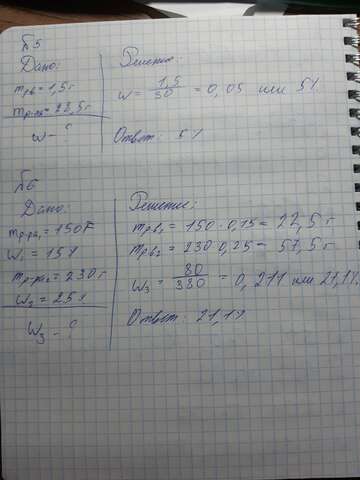 №5
Дано:
mрв = 1,5 г
mр-ра = 28,5 г
w - ?
Решение:
w = 1,5/30 = 0,05 или 5%
Ответ: 5%
№6
Дано:
mр-ра₁ = 150 г
w₁ = 15%
mр-ра₂ = 230 г
w₂ = 25%
w₃ - ?
Решение:
mрв₁ = 150 · 0,15 = 22,5 г
mрв₂ = 230 0,25 = 57,5 г
w₃ = 80/380 = 0,211 или 21,1%
Ответ: 21,1%